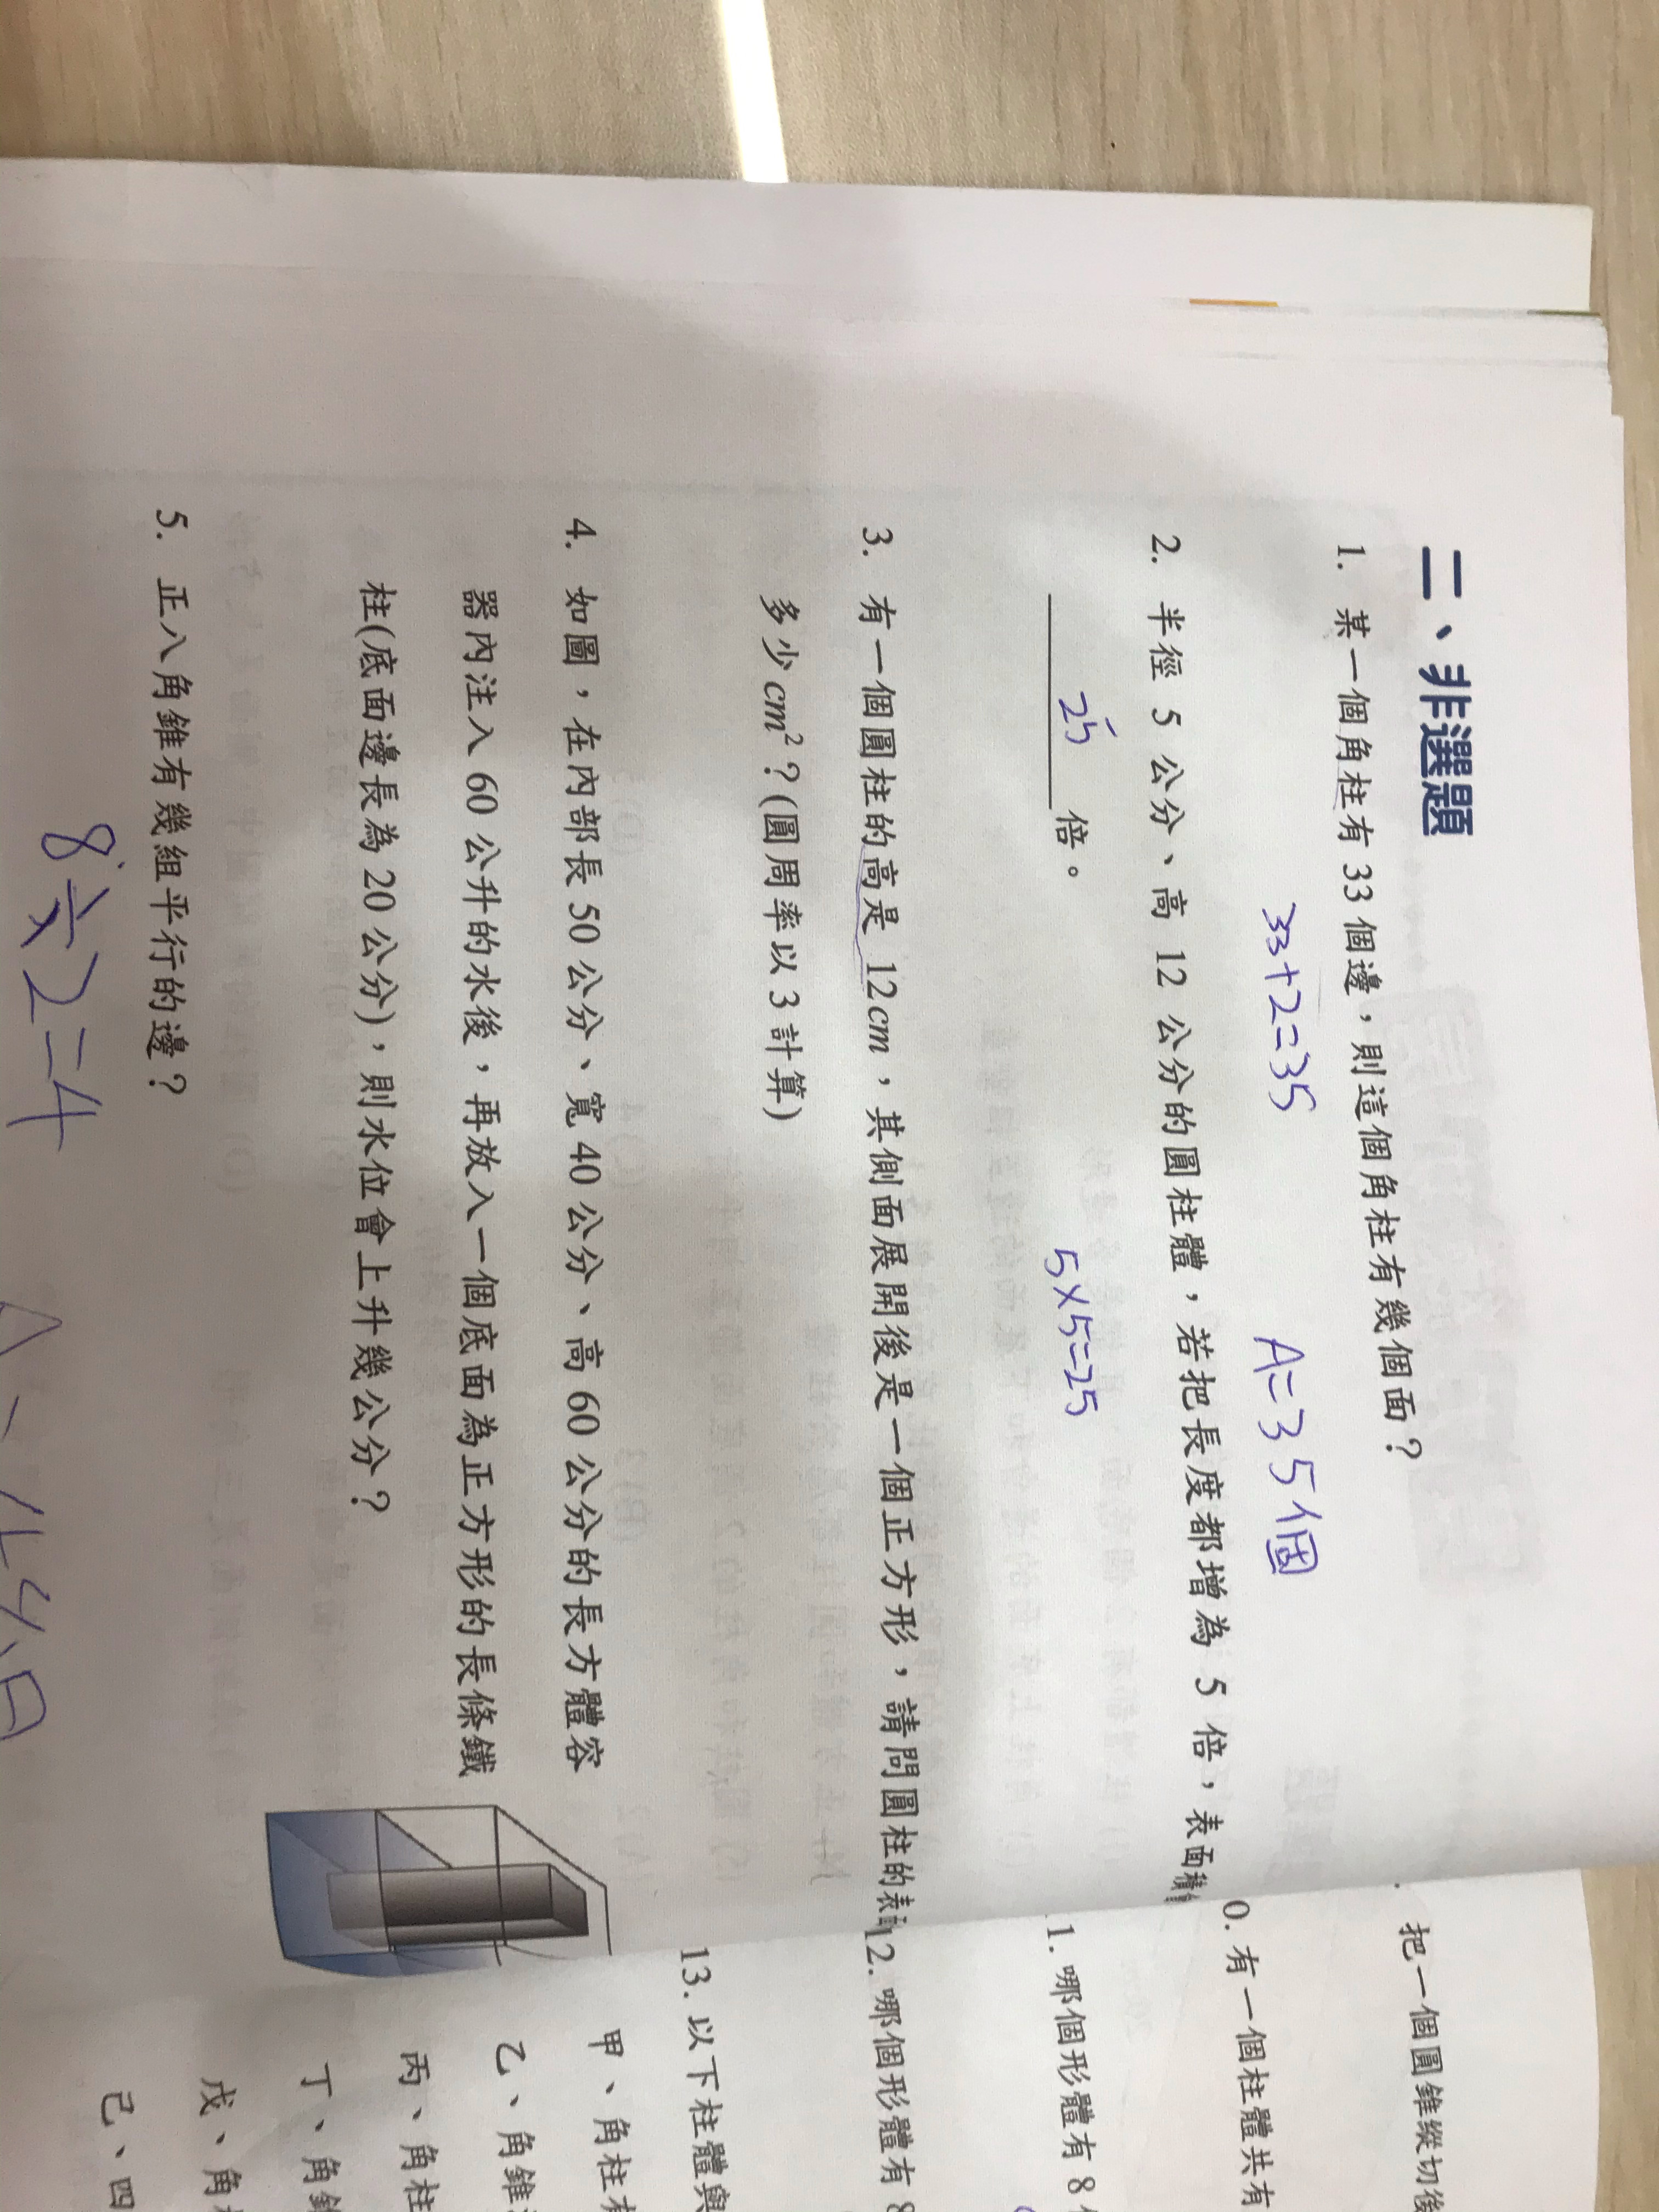 二、非選題
1. 某一個角柱有 33 個邊，則這個角柱有幾個面？
33+2=35 A=35個
2. 半徑 5 公分、高 12 公分的圓柱體，若把長度都增為 5 倍，表面積
25 倍。
5×5=25
3. 有一個圓柱的高是 12cm，其側面展開後是一個正方形，請問圓柱的表
多少cm²？(圓周率以 3 計算)
4. 如圖，在內部長 50 公分、寬 40 公分、高 60 公分的長方體容
器內注入 60 公升的水後，再放入一個底面為正方形的長條鐵
柱(底面邊長為 20 公分)，則水位會上升幾公分？
5. 正八角錐有幾組平行的邊？
8÷2=4
把一個圓錐縱切後
0. 有一個柱體共有
1. 哪個形體有 8
2. 哪個形體有 8
13. 以下柱體與
甲、角柱有
乙、角錐
丙、角柱
丁、角錐
戊、角
己、四